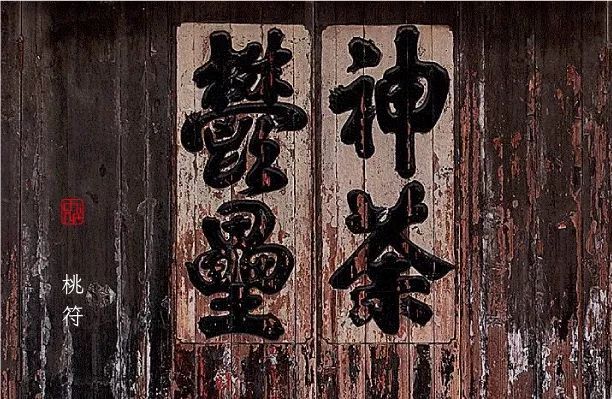 神荼
鬱壘
桃符